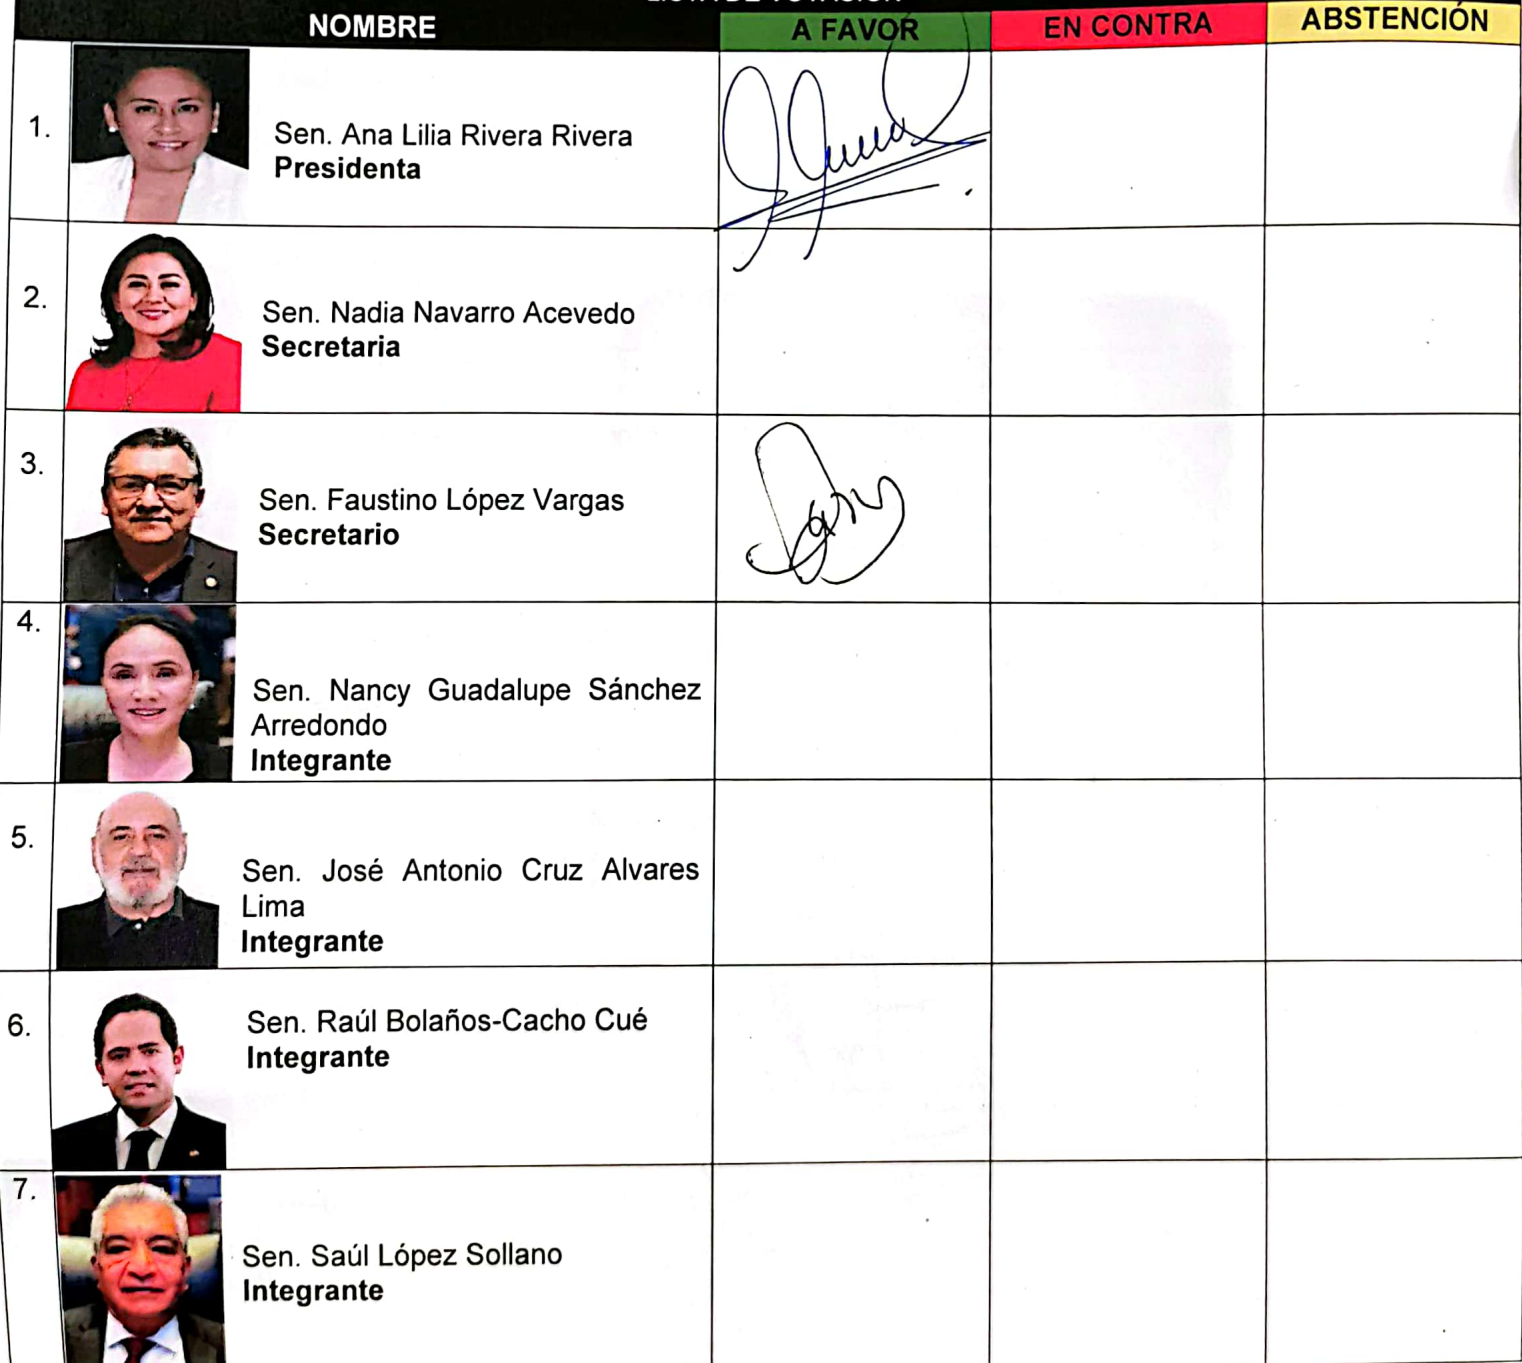 NOMBRE A FAVOR EN CONTRA ABSTENCIÓN
1. Sen. Ana Lilia Rivera Rivera
Presidenta
2. Sen. Nadia Navarro Acevedo
Secretaria
3. Sen. Faustino López Vargas
Secretario
4. Sen. Nancy Guadalupe Sánchez
Arredondo
Integrante
5. Sen. José Antonio Cruz Alvares
Lima
Integrante
6. Sen. Raúl Bolaños-Cacho Cué
Integrante
7. Sen. Saúl López Sollano
Integrante